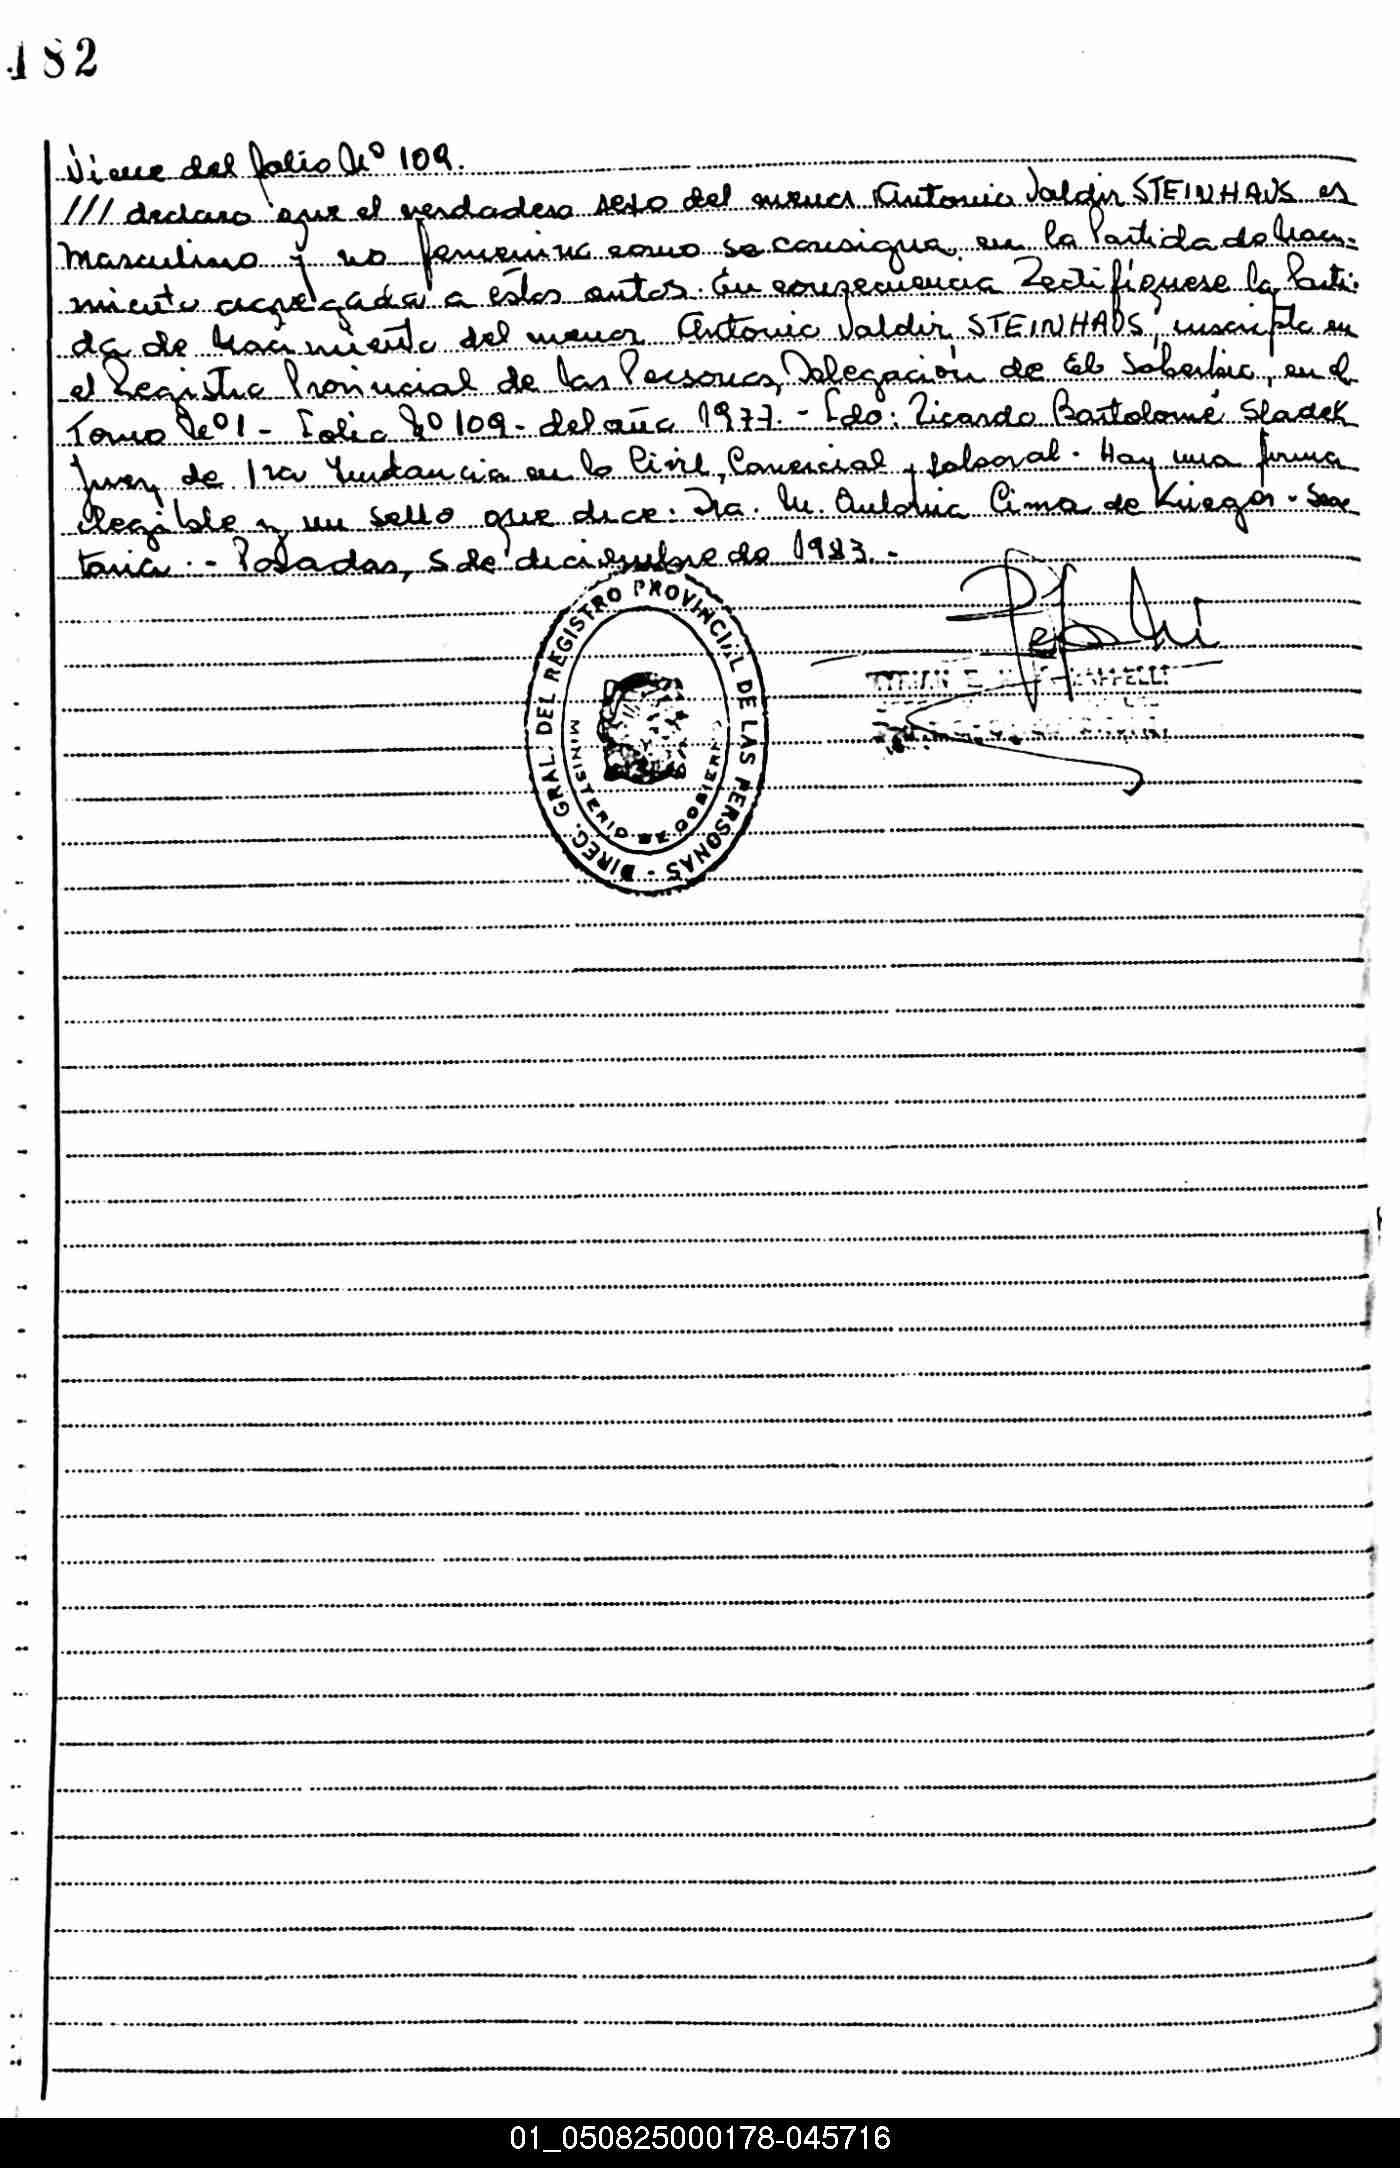 182
Viene del folio Nº 109.
/// declaro que el verdadero sexo del menor Antonio Valdir STEINHAUS es
Masculino y no femenino como se consigna en la Partida de Naci-
miento agregada a éstos autos. En consecuencia Rectifíquese la Parti-
da de Nacimiento del menor Antonio Valdir STEINHAUS, inscripta en
el Registro Provincial de las Personas, Delegación de El Soberbio, en el
Tomo Nº 1 - Folio Nº 109 - del año 1977. - Fdo: Ricardo Bartolomé Sladek
Juez de 1ra Instancia en lo Civil, Comercial y Laboral. Hay una firma
ilegible y un sello que dice: Dra. M. Antonia Cima de Krieger - Secre
taria. - Posadas, 5 de diciembre de 1983. -
DIREC. GRAL. DEL REGISTRO PROVINCIAL DE LAS PERSONAS -
MINISTERIO DE GOBIERNO
01_050825000178-045716